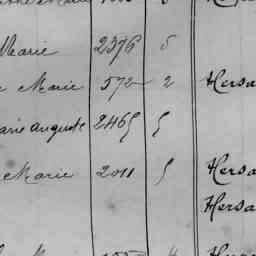 Marie 2376 5
Marie 572 2 Hersa
Marie Auguste 2465 5
Marie 2011 5 Hersa
Hersa